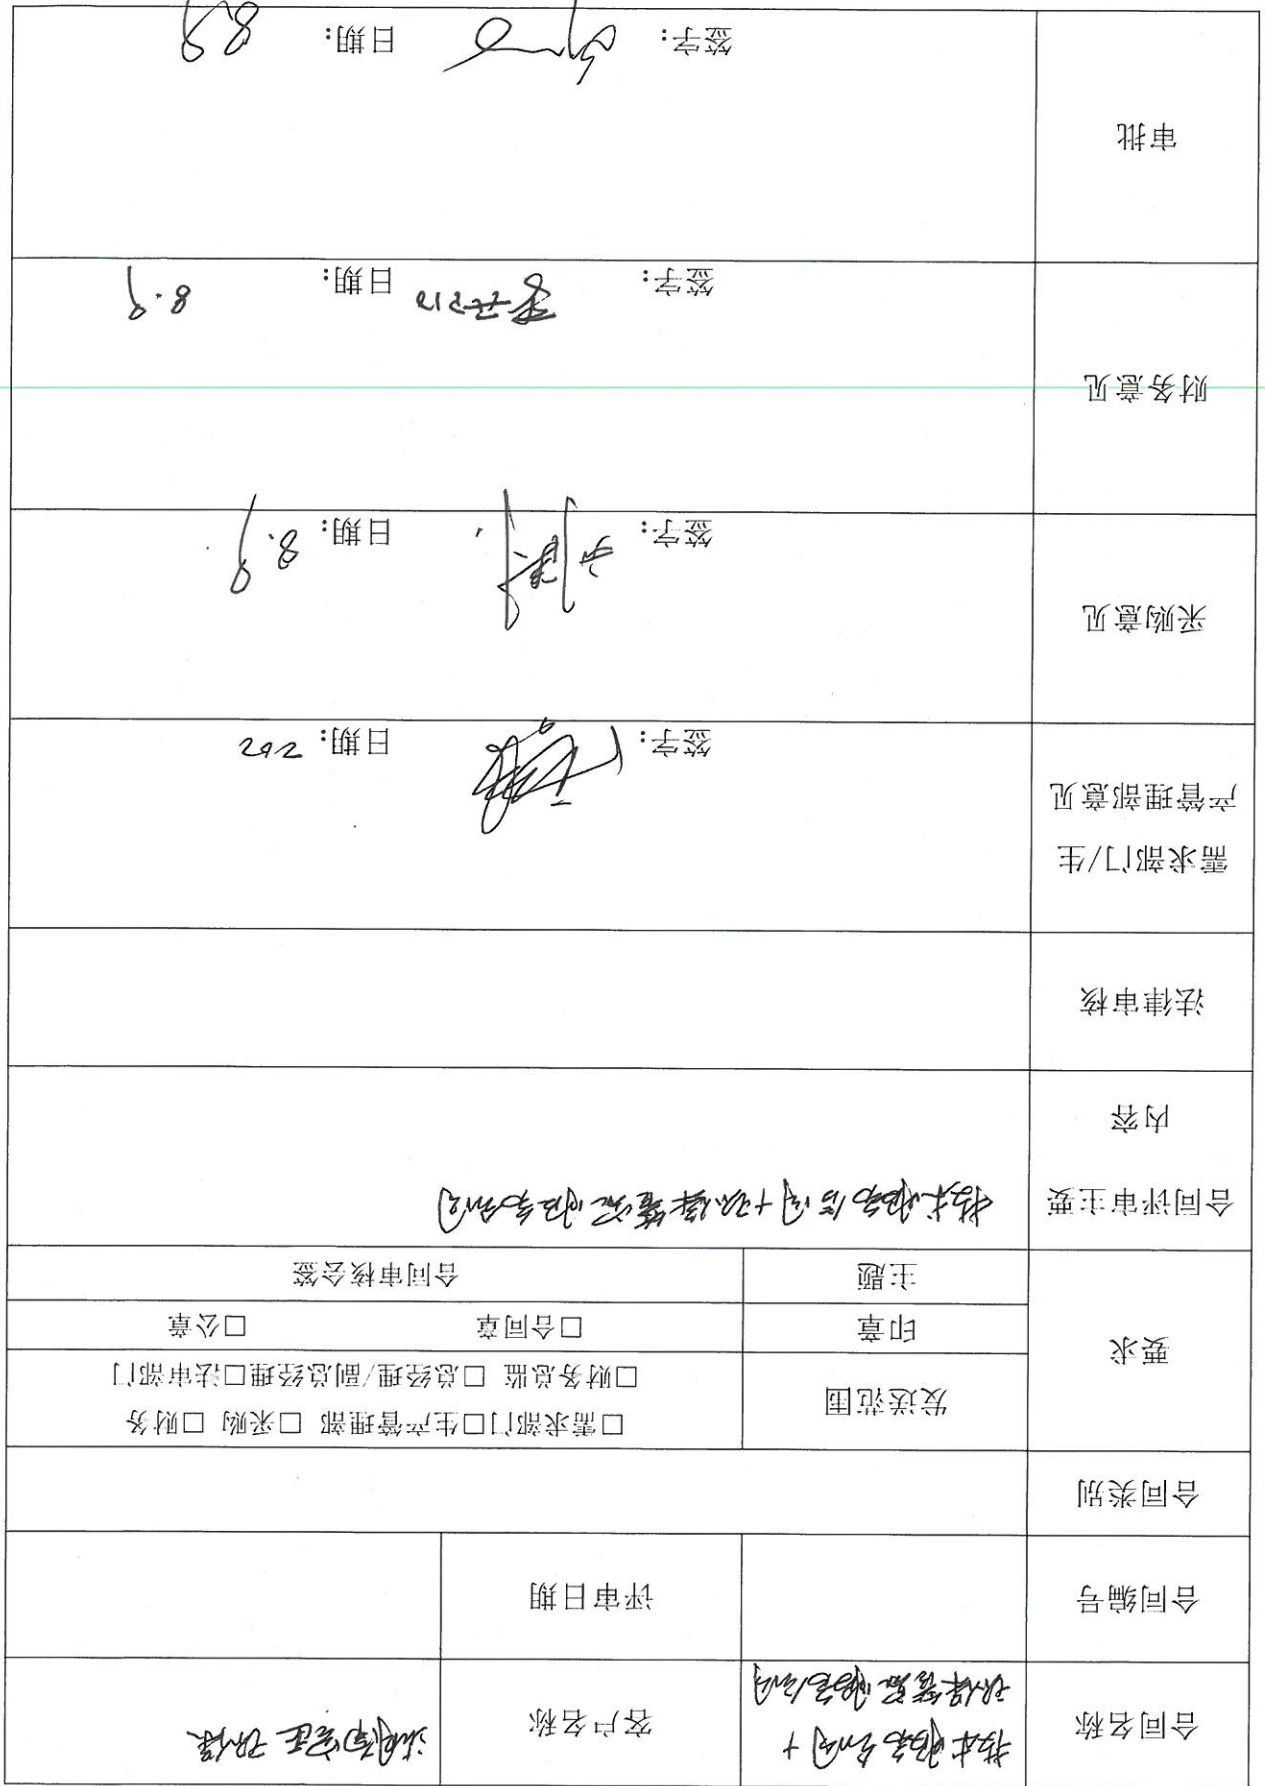 合同名称
技术服务合同+
环保管家服务合同
客户名称
环保
合同编号
评审日期
合同类别
要求
发送范围
□需求部门□生产管理部 □采购 □财务
□财务总监 □总经理/副总经理□法审部门
印章
□合同章 □公章
主题
合同审核会签
合同评审主要
内容
技术服务合同+环保管家服务合同
法律审核
需求部门/生
产管理部意见
签字: 日期: 202
采购意见
签字: 日期: 8.9
财务意见
签字: 日期: 8.9
审批
签字: 日期: 8.9